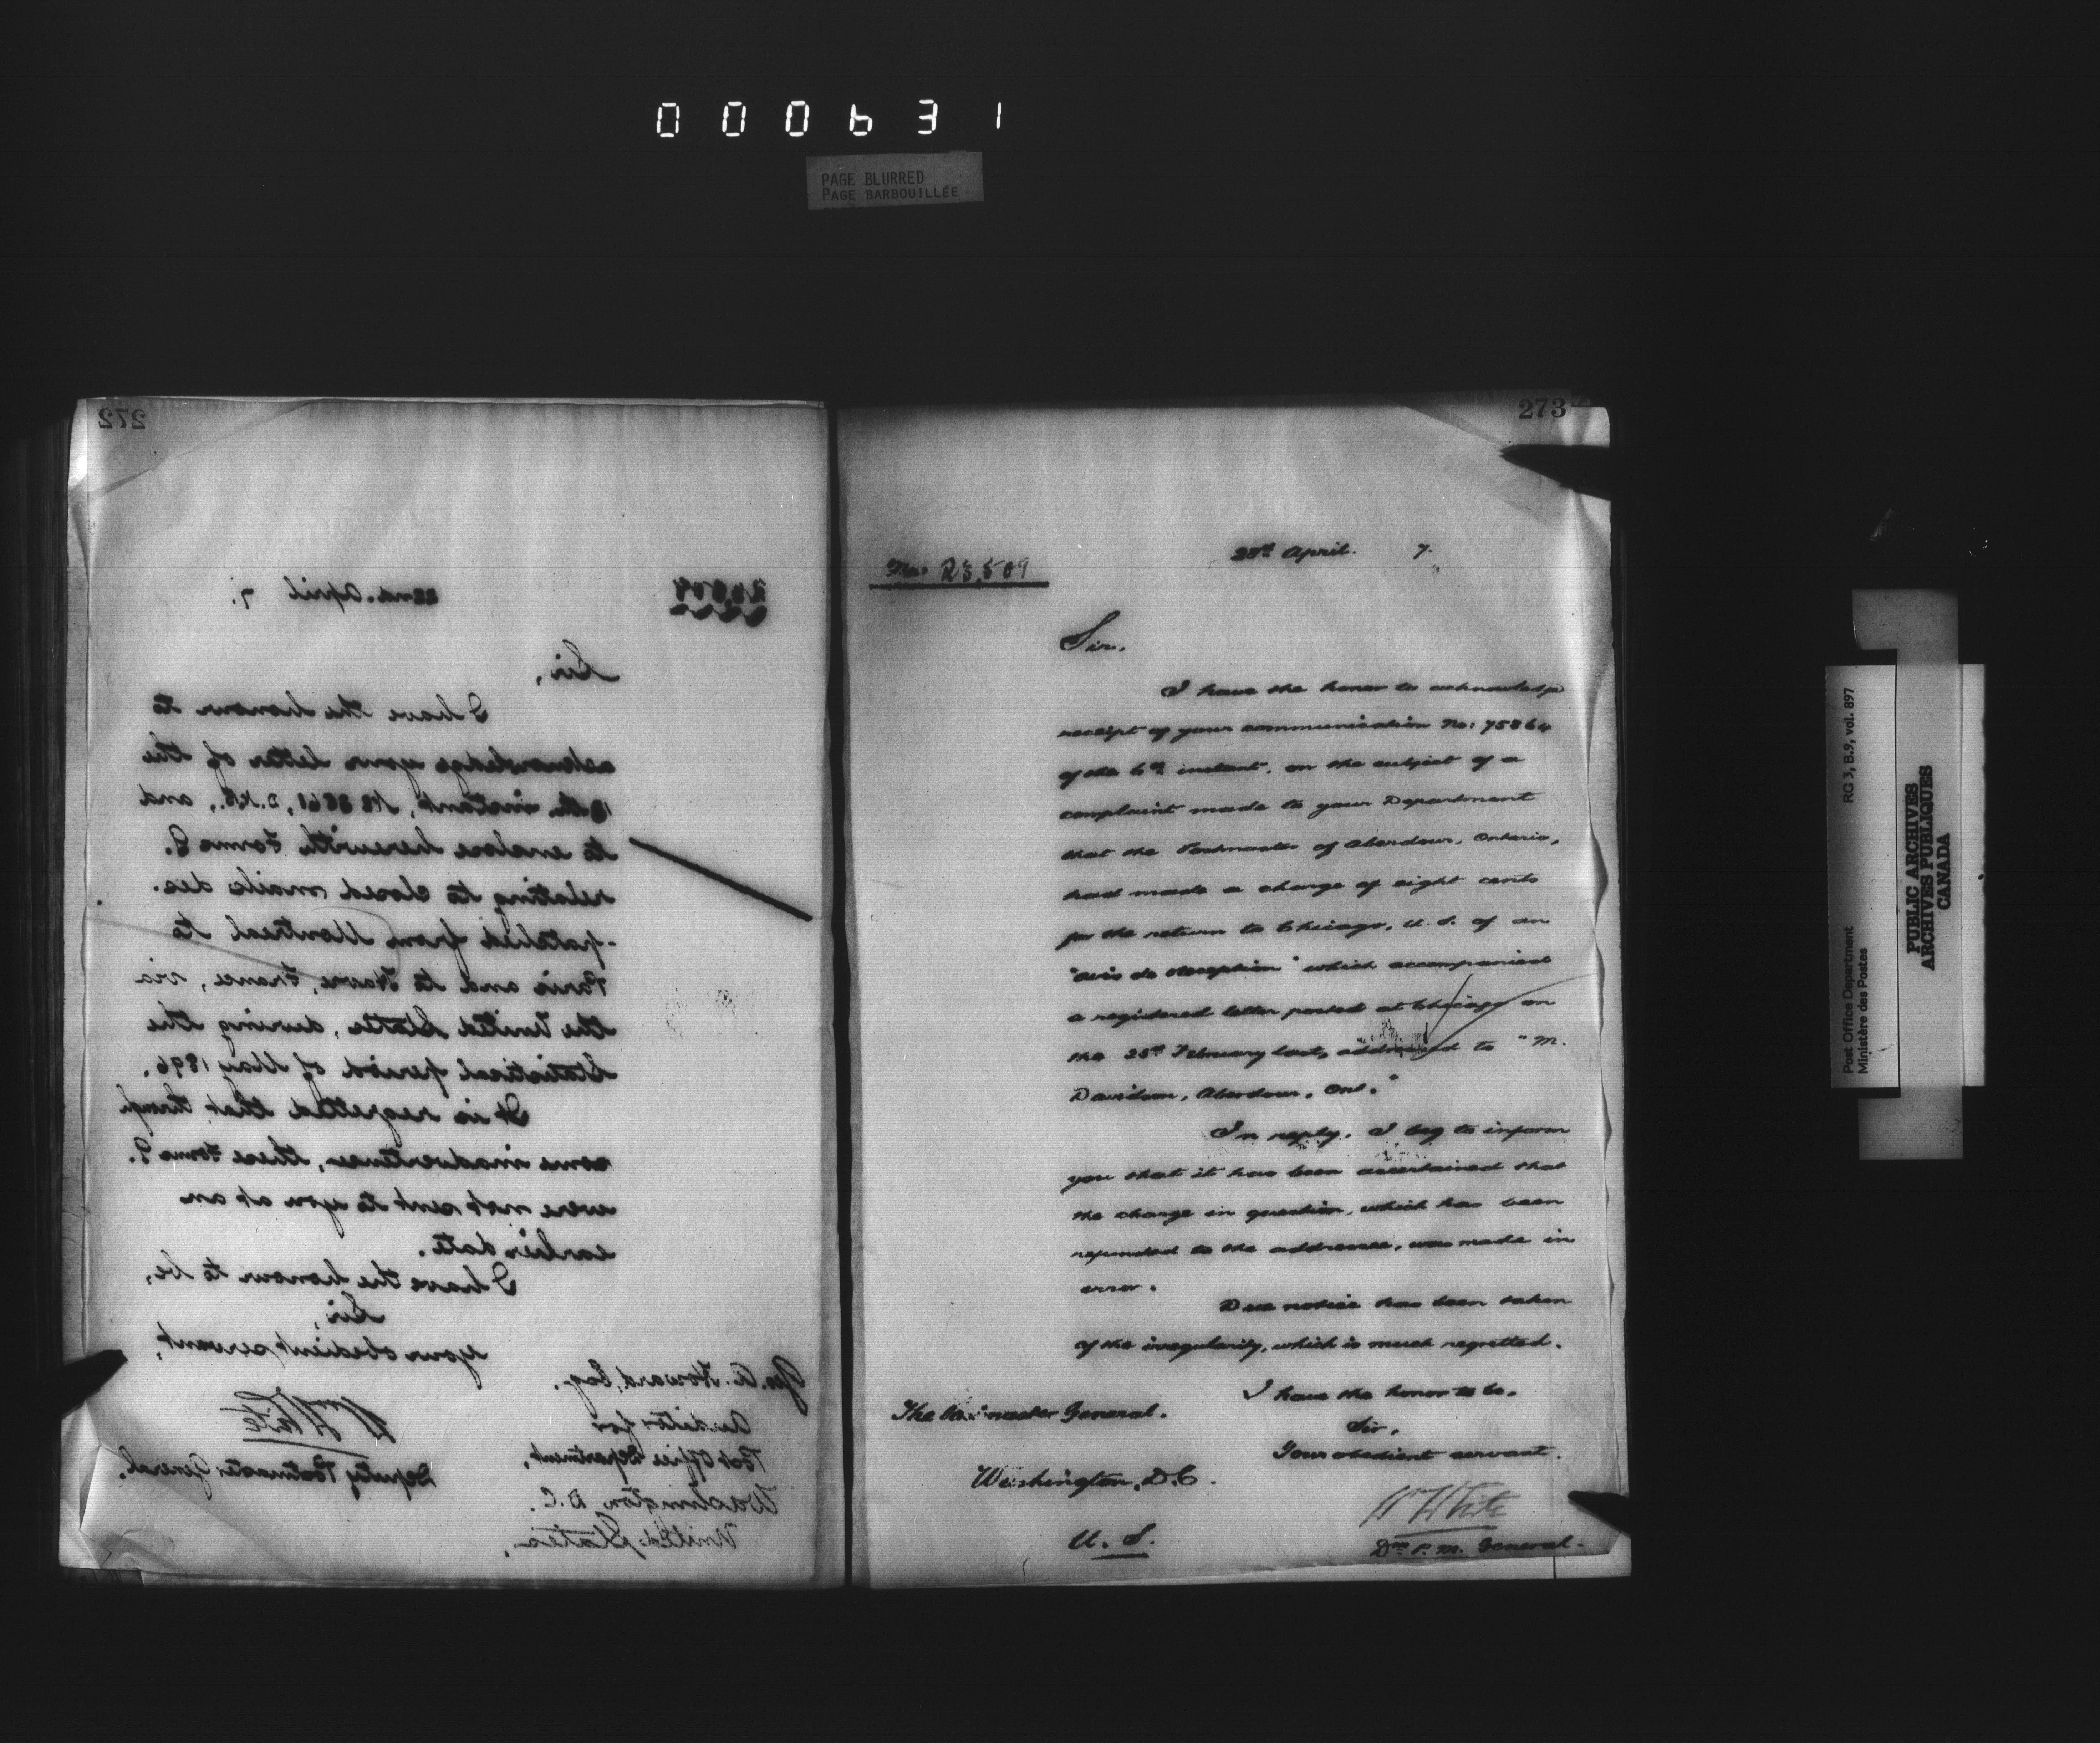 000631
PAGE BLURRED
PAGE BARBOUILLÉE
272
22nd. April 7.
Sir,
I have the honour to
acknowledge your letter of the
instant, and
to enclose herewith Forms G.
relating to closed mails des-
-patched from Montreal to
Paris and to Havre, France, via
the United States, during the
Statistical period of May 1896.
It is regretted that, through
some inadvertence, these Forms G.
were not sent to you at an
earlier date.
I have the honour to be,
Sir,
Your obedient servant,
Wm White
Deputy Postmaster General.
Geo. A. Howard, Esq.
Auditor for
Post Office Department,
Washington D.C.
United States.
273
No: 23,509
April. 7.
Sir.
I have the honor to acknowledge
receipt of your communication No: 75864
of the 6th instant, on the subject of a
complaint made to your Department
that the Postmaster of Aberdour, Ontario,
had made a charge of eight cents
for the return to Chicago, U. S. of an
"avis de réception" which accompanied
a registered letter posted at Chicago on
the February last, addressed to "M.
Davidson, Aberdour, Ont."
In reply, I beg to inform
you that it has been ascertained that
the charge in question, which has been
refunded to the addressee, was made in
error.
Due notice has been taken
of the irregularity, which is much regretted.
I have the honor to be.
Sir,
Your obedient servant.
Wm White
Dy. P. M. General.
The Postmaster General.
Washington, D.C.
U. S.
Post Office Department RG 3, B.9, vol. 897
Ministère des Postes
PUBLIC ARCHIVES
ARCHIVES PUBLIQUES
CANADA